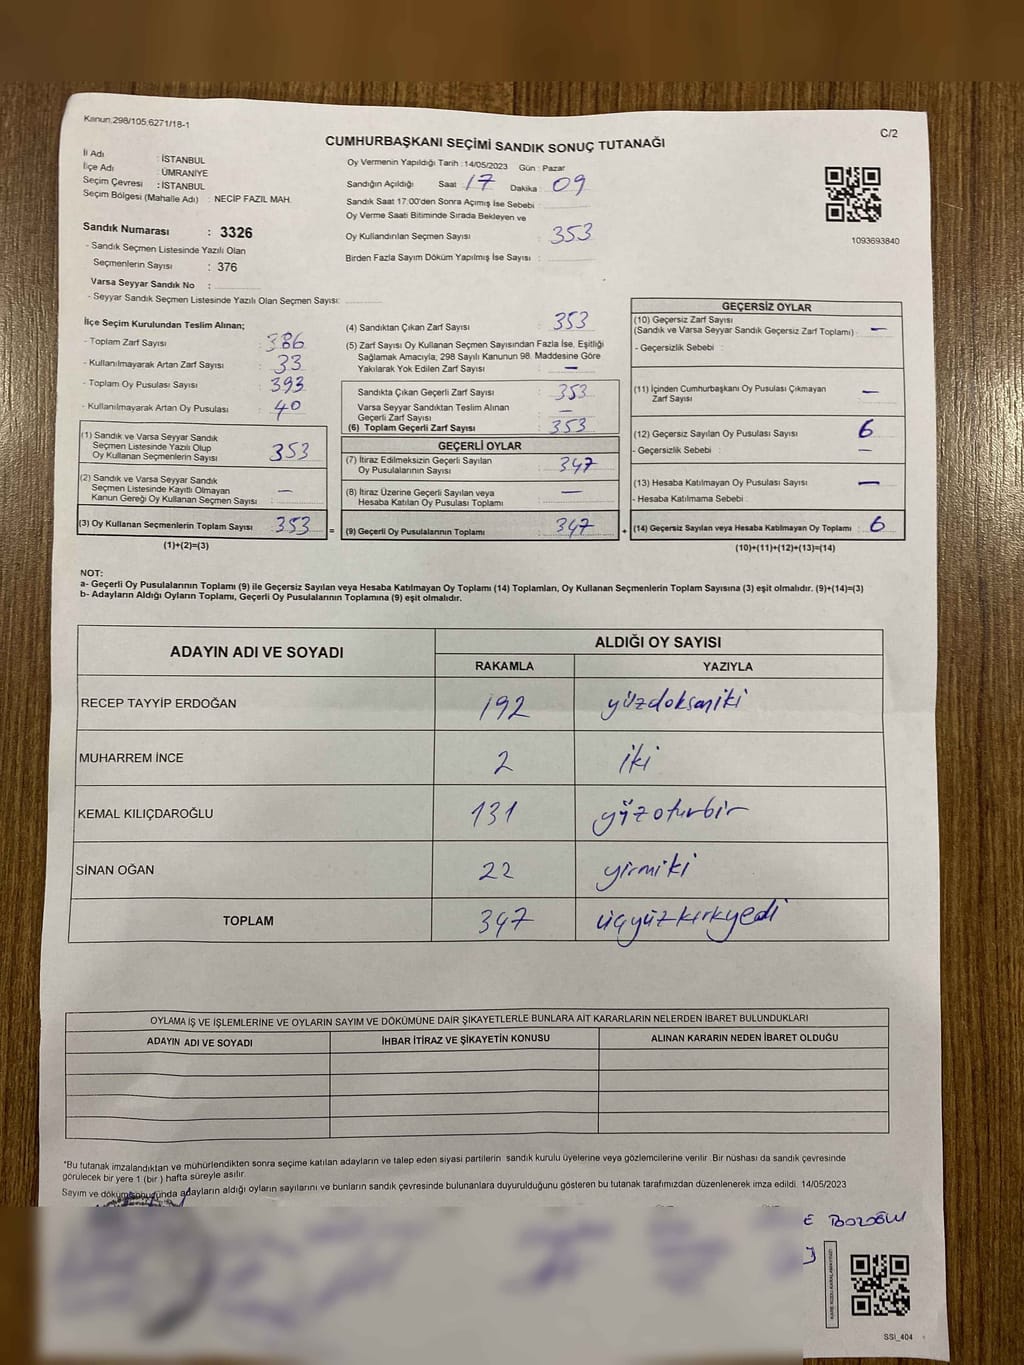 Kanun:298/105,6271/18-1
C/2
CUMHURBAŞKANI SEÇİMİ SANDIK SONUÇ TUTANAĞI
İl Adı : İSTANBUL
İlçe Adı : ÜMRANİYE
Seçim Çevresi : İSTANBUL
Seçim Bölgesi (Mahalle Adı) : NECİP FAZIL MAH.
Sandık Numarası : 3326
- Sandık Seçmen Listesinde Yazılı Olan
Seçmenlerin Sayısı : 376
Varsa Seyyar Sandık No :
- Seyyar Sandık Seçmen Listesinde Yazılı Olan Seçmen Sayısı:
Oy Vermenin Yapıldığı Tarih :14/05/2023 Gün : Pazar
Sandığın Açıldığı Saat 17 Dakika : 09
Sandık Saat 17:00'den Sonra Açımış İse Sebebi :
Oy Verme Saati Bitiminde Sırada Bekleyen ve
Oy Kullandırılan Seçmen Sayısı : 353
Birden Fazla Sayım Döküm Yapılmış İse Sayısı :
1093693840
İlçe Seçim Kurulundan Teslim Alınan;
- Toplam Zarf Sayısı : 386
- Kullanılmayarak Artan Zarf Sayısı : 33
- Toplam Oy Pusulası Sayısı : 393
- Kullanılmayarak Artan Oy Pusulası : 40
(1) Sandık ve Varsa Seyyar Sandık
Seçmen Listesinde Yazılı Olup
Oy Kullanan Seçmenlerin Sayısı : 353
(2) Sandık ve Varsa Seyyar Sandık
Seçmen Listesinde Kayıtlı Olmayan
Kanun Gereği Oy Kullanan Seçmen Sayısı : —
(3) Oy Kullanan Seçmenlerin Toplam Sayısı : 353 =
(1)+(2)=(3)
(4) Sandıktan Çıkan Zarf Sayısı : 353
(5) Zarf Sayısı Oy Kullanan Seçmen Sayısından Fazla İse, Eşitliği
Sağlamak Amacıyla, 298 Sayılı Kanunun 98. Maddesine Göre
Yakılarak Yok Edilen Zarf Sayısı : —
Sandıkta Çıkan Geçerli Zarf Sayısı : 353
Varsa Seyyar Sandıktan Teslim Alınan
Geçerli Zarf Sayısı : —
(6) Toplam Geçerli Zarf Sayısı : 353
GEÇERLİ OYLAR
(7) İtiraz Edilmeksizin Geçerli Sayılan
Oy Pusulalarının Sayısı : 347
(8) İtiraz Üzerine Geçerli Sayılan veya
Hesaba Katılan Oy Pusulaları Toplamı : —
(9) Geçerli Oy Pusulalarının Toplamı : 347 +
GEÇERSİZ OYLAR
(10) Geçersiz Zarf Sayısı
(Sandık ve Varsa Seyyar Sandık Geçersiz Zarf Toplamı) : —
- Geçersizlik Sebebi :
(11) İçinden Cumhurbaşkanı Oy Pusulası Çıkmayan
Zarf Sayısı : —
(12) Geçersiz Sayılan Oy Pusulası Sayısı : 6
- Geçersizlik Sebebi : —
(13) Hesaba Katılmayan Oy Pusulası Sayısı : —
- Hesaba Katılmama Sebebi :
(14) Geçersiz Sayılan veya Hesaba Katılmayan Oy Toplamı : 6
(10)+(11)+(12)+(13)=(14)
NOT:
a- Geçerli Oy Pusulalarının Toplamı (9) ile Geçersiz Sayılan veya Hesaba Katılmayan Oy Toplamı (14) Toplamları, Oy Kullanan Seçmenlerin Toplam Sayısına (3) eşit olmalıdır. (9)+(14)=(3)
b- Adayların Aldığı Oyların Toplamı, Geçerli Oy Pusulalarının Toplamına (9) eşit olmalıdır.
ADAYIN ADI VE SOYADI
ALDIĞI OY SAYISI
RAKAMLA YAZIYLA
RECEP TAYYİP ERDOĞAN 192 yüzdoksaniki
MUHARREM İNCE 2 iki
KEMAL KILIÇDAROĞLU 131 yüzoturbir
SİNAN OĞAN 22 yirmiki
TOPLAM 347 üçyüzkırkyedi
OYLAMA İŞ VE İŞLEMLERİNE VE OYLARIN SAYIM VE DÖKÜMÜNE DAİR ŞİKAYETLERLE BUNLARA AİT KARARLARIN NELERDEN İBARET BULUNDUKLARI
ADAYIN ADI VE SOYADI İHBAR İTİRAZ VE ŞİKAYETİN KONUSU ALINAN KARARIN NEDEN İBARET OLDUĞU
*Bu tutanak imzalandıktan ve mühürlendikten sonra seçime katılan adayların ve talep eden siyasi partilerin sandık kurulu üyelerine veya gözlemcilerine verilir. Bir nüshası da sandık çevresinde
görülecek bir yere 1 (bir ) hafta süreyle asılır.
Sayım ve döküm sonucunda adayların aldığı oyların sayılarını ve bunların sandık çevresinde bulunanlara duyurulduğunu gösteren bu tutanak tarafımızdan düzenlenerek imza edildi. 14/05/2023
SSİ_404